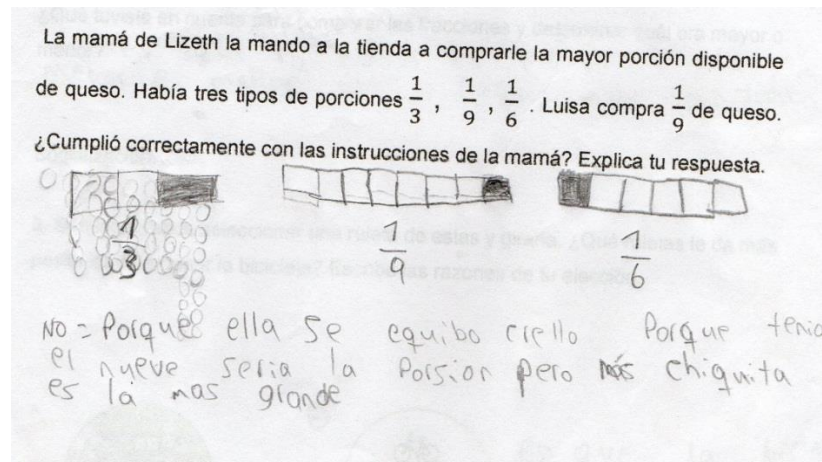 La mamá de Lizeth la mando a la tienda a comprarle la mayor porción disponible
de queso. Había tres tipos de porciones 1/3 , 1/9 , 1/6 . Luisa compra 1/9 de queso.
¿Cumplió correctamente con las instrucciones de la mamá? Explica tu respuesta.
1/3 1/9 1/6
NO = Porque ella se equibo crello Porque tenia
el nueve seria la Porsion pero más chiquita
es la mas grande